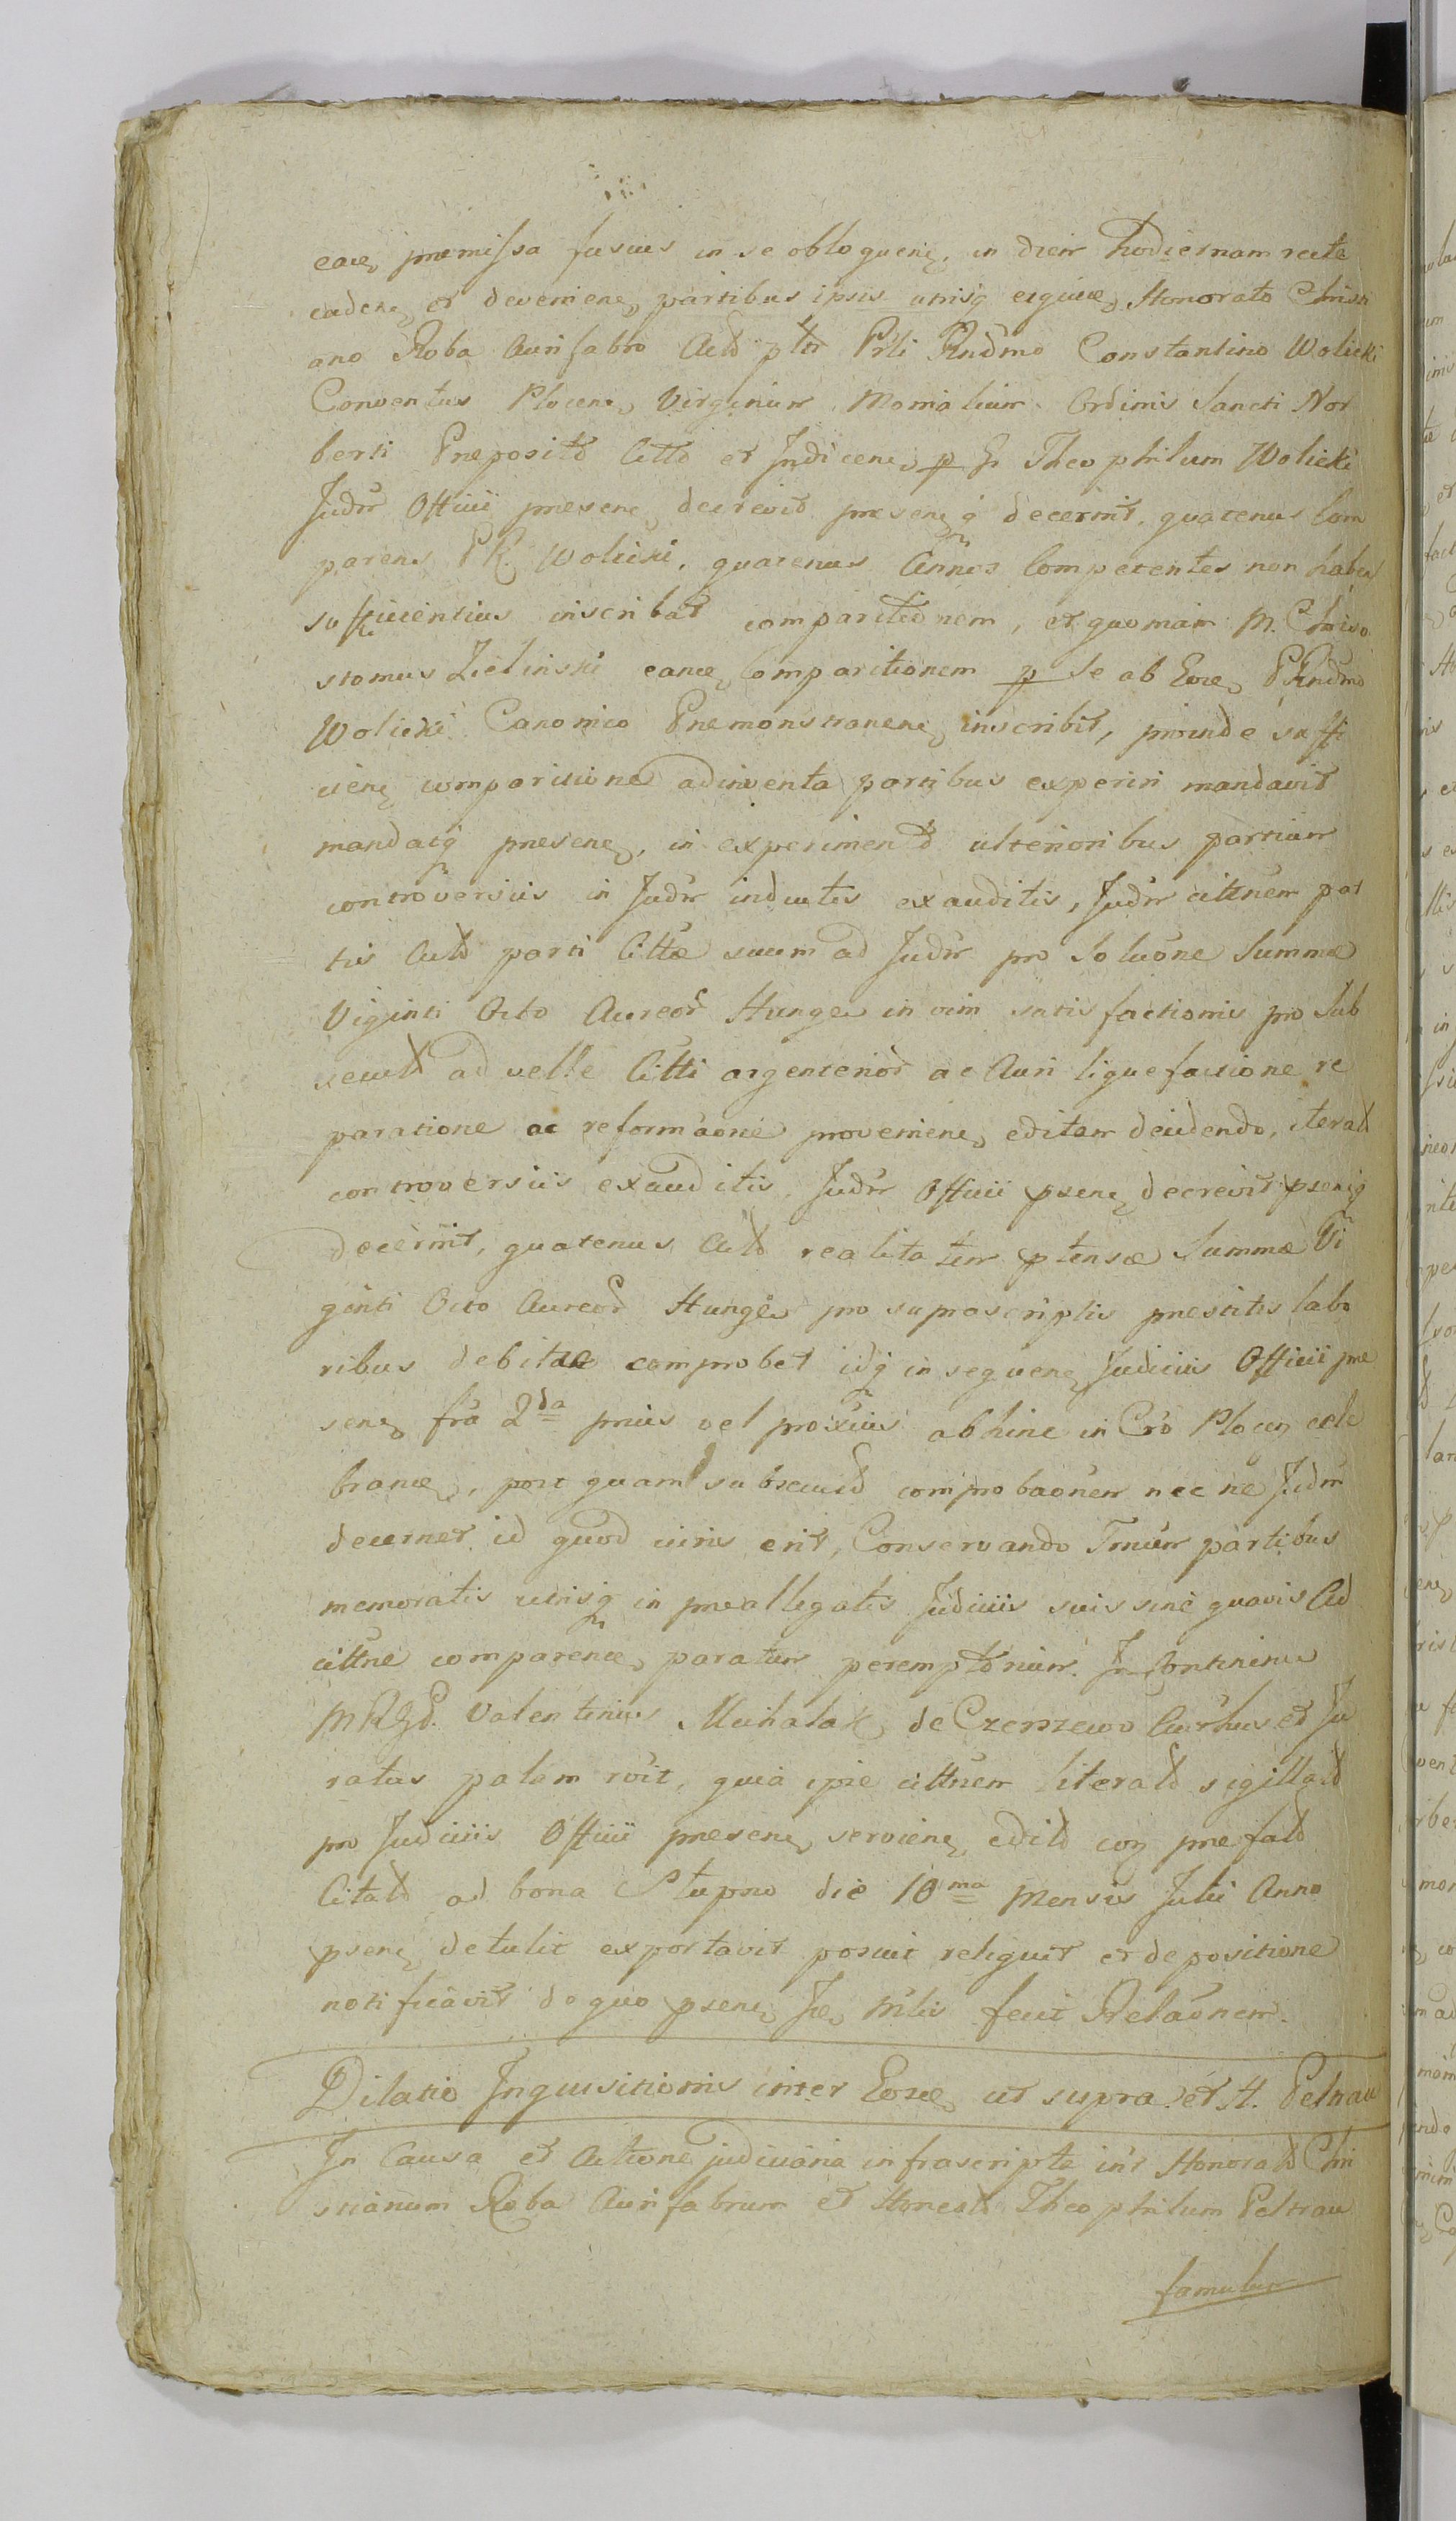 eaq premissa fusius in se obloquenę, in diem hodiernam recte
cadenę et devenienę, partibus ipsis utrisq, Honorato Christi
ano Roba Aurifabro Actō Rndmo Constantino Wolicki
Conventus Plocenę Virginum Monialium Ordinis Sancti Nor
berti Prepositō Cittō et Judicenę p Theophilum Wolicki
Judm Officii presenę decrevit presenę q decernit, quatenus Com
parens PR. Wolicki, quatenus Competentes non habens
sufficientius inscribat comparitionem, et quoniam M. Chriso
stomus Zielinski eancę Comparitionem p se ab Eoę PRndmo
Wolicki Canonico Premonstranenę inscribit, proinde suffi
cienę comparitione adinventa partibus experiri mandavit
mandatq presenę, in experimentō ulterioribus partium
controversiis in Judm inductis exauditis, Judm cittnem par
tis Actō parti Cittæ suum ad Judm pro Soluōne Summæ
Viginti Octo Aureor Hungę in vim satisfactionis pro Sub
secutō ad velle Citti argenterior ac Auri liquefactione re
paratione ac reformaōne provenienę editam decidendo, iteratō
controversiis exauditis, Judm Officii psenę decrevit psenę q
decernit, quatenus Actō realitatem ptensæ Summæ Vi
ginti Octo Aureor Hungę pro suprascriptis prestitis labo
ribus debitæ comprobet idq in sequenę Judiciis Officii pre
senę fra 2da prius vel proxius abhinc in Cro Plocę cele
brancę, post quam subsecutō comprobaōnem nec ne Judm
decernet id quod iuris erit, Conservando Tmum partibus
memoratis utrisq in preallegatis Judiciis suis sine quavis Ad
cittne comparencę paratum peremptorium. In Continenę
Valentinus Michalak de Czerszewo Aurhus et Ju
ratus palam roit, quia ipse cittnem literatō sigillatō
pro Judiciis Officii presenę servienę editō coę prefatō
Citatō ad bona Słupno die 10ma Mensis Julii Anno
psenę detulit exportavit posuit reliquit et de positione
notificavit de quo psenę Mtis fecit Relaōnem.
Dilatio Inquisitionis inter Eoscę ut supra et H. Peltrau
In Causa et Actione judiciaria infrascripta int Honoratō Chri
stianum Roba Aurifabrum et Honestō Theophilum Peltrau
famulum